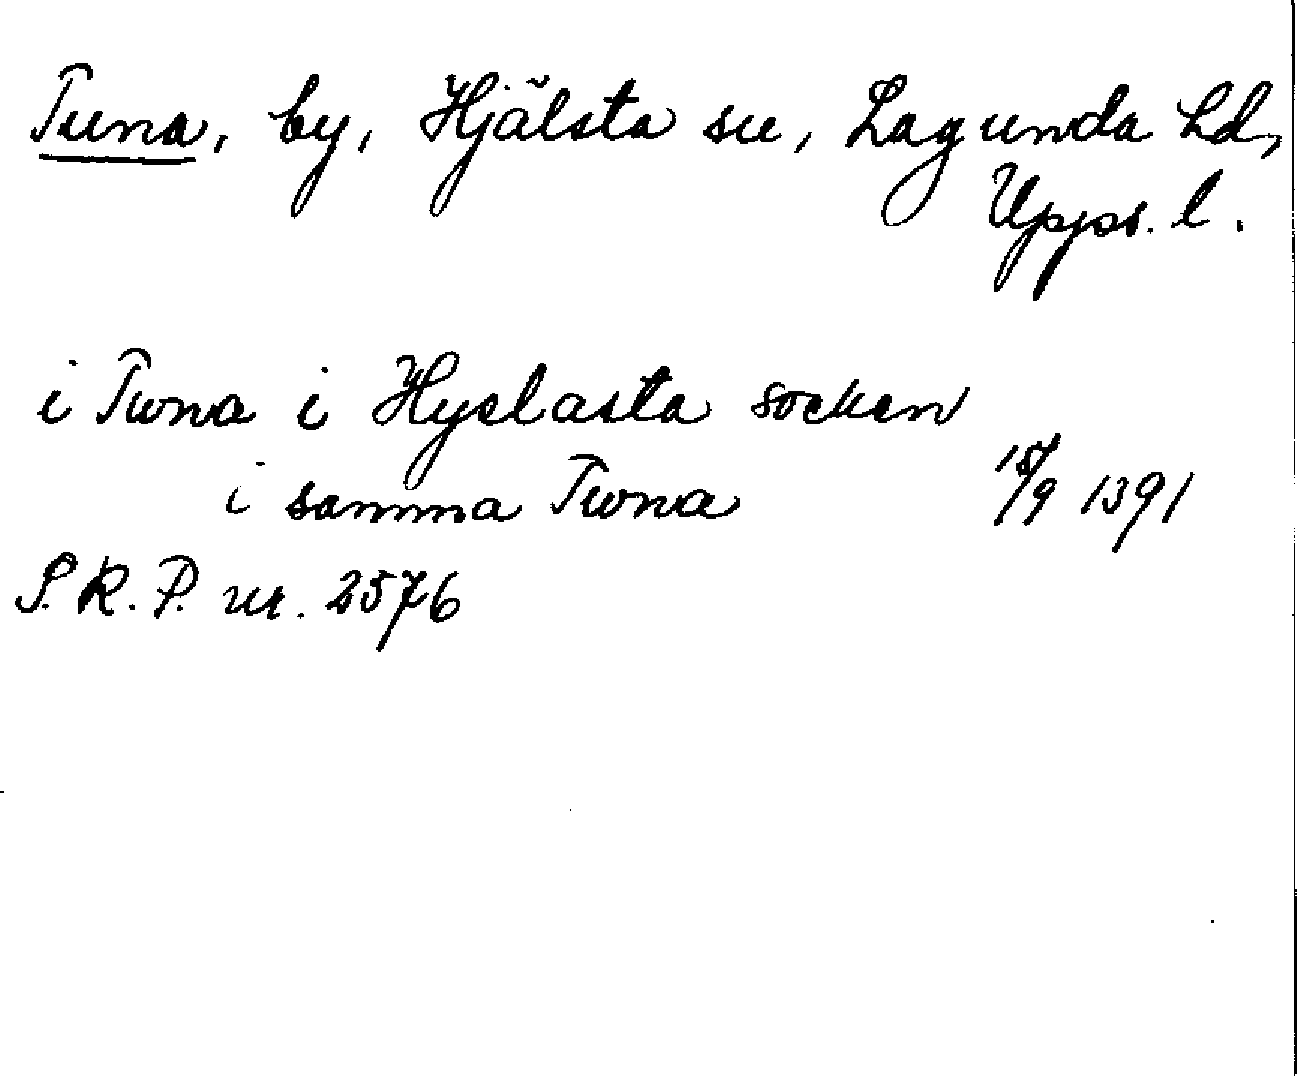 Tuna, by, Hjälsta sn, Lagunda hd,
Upps. l.
i Twna i Hyelasta socken
i samma Twna 15/9 1391
S.R.P. nr. 2576